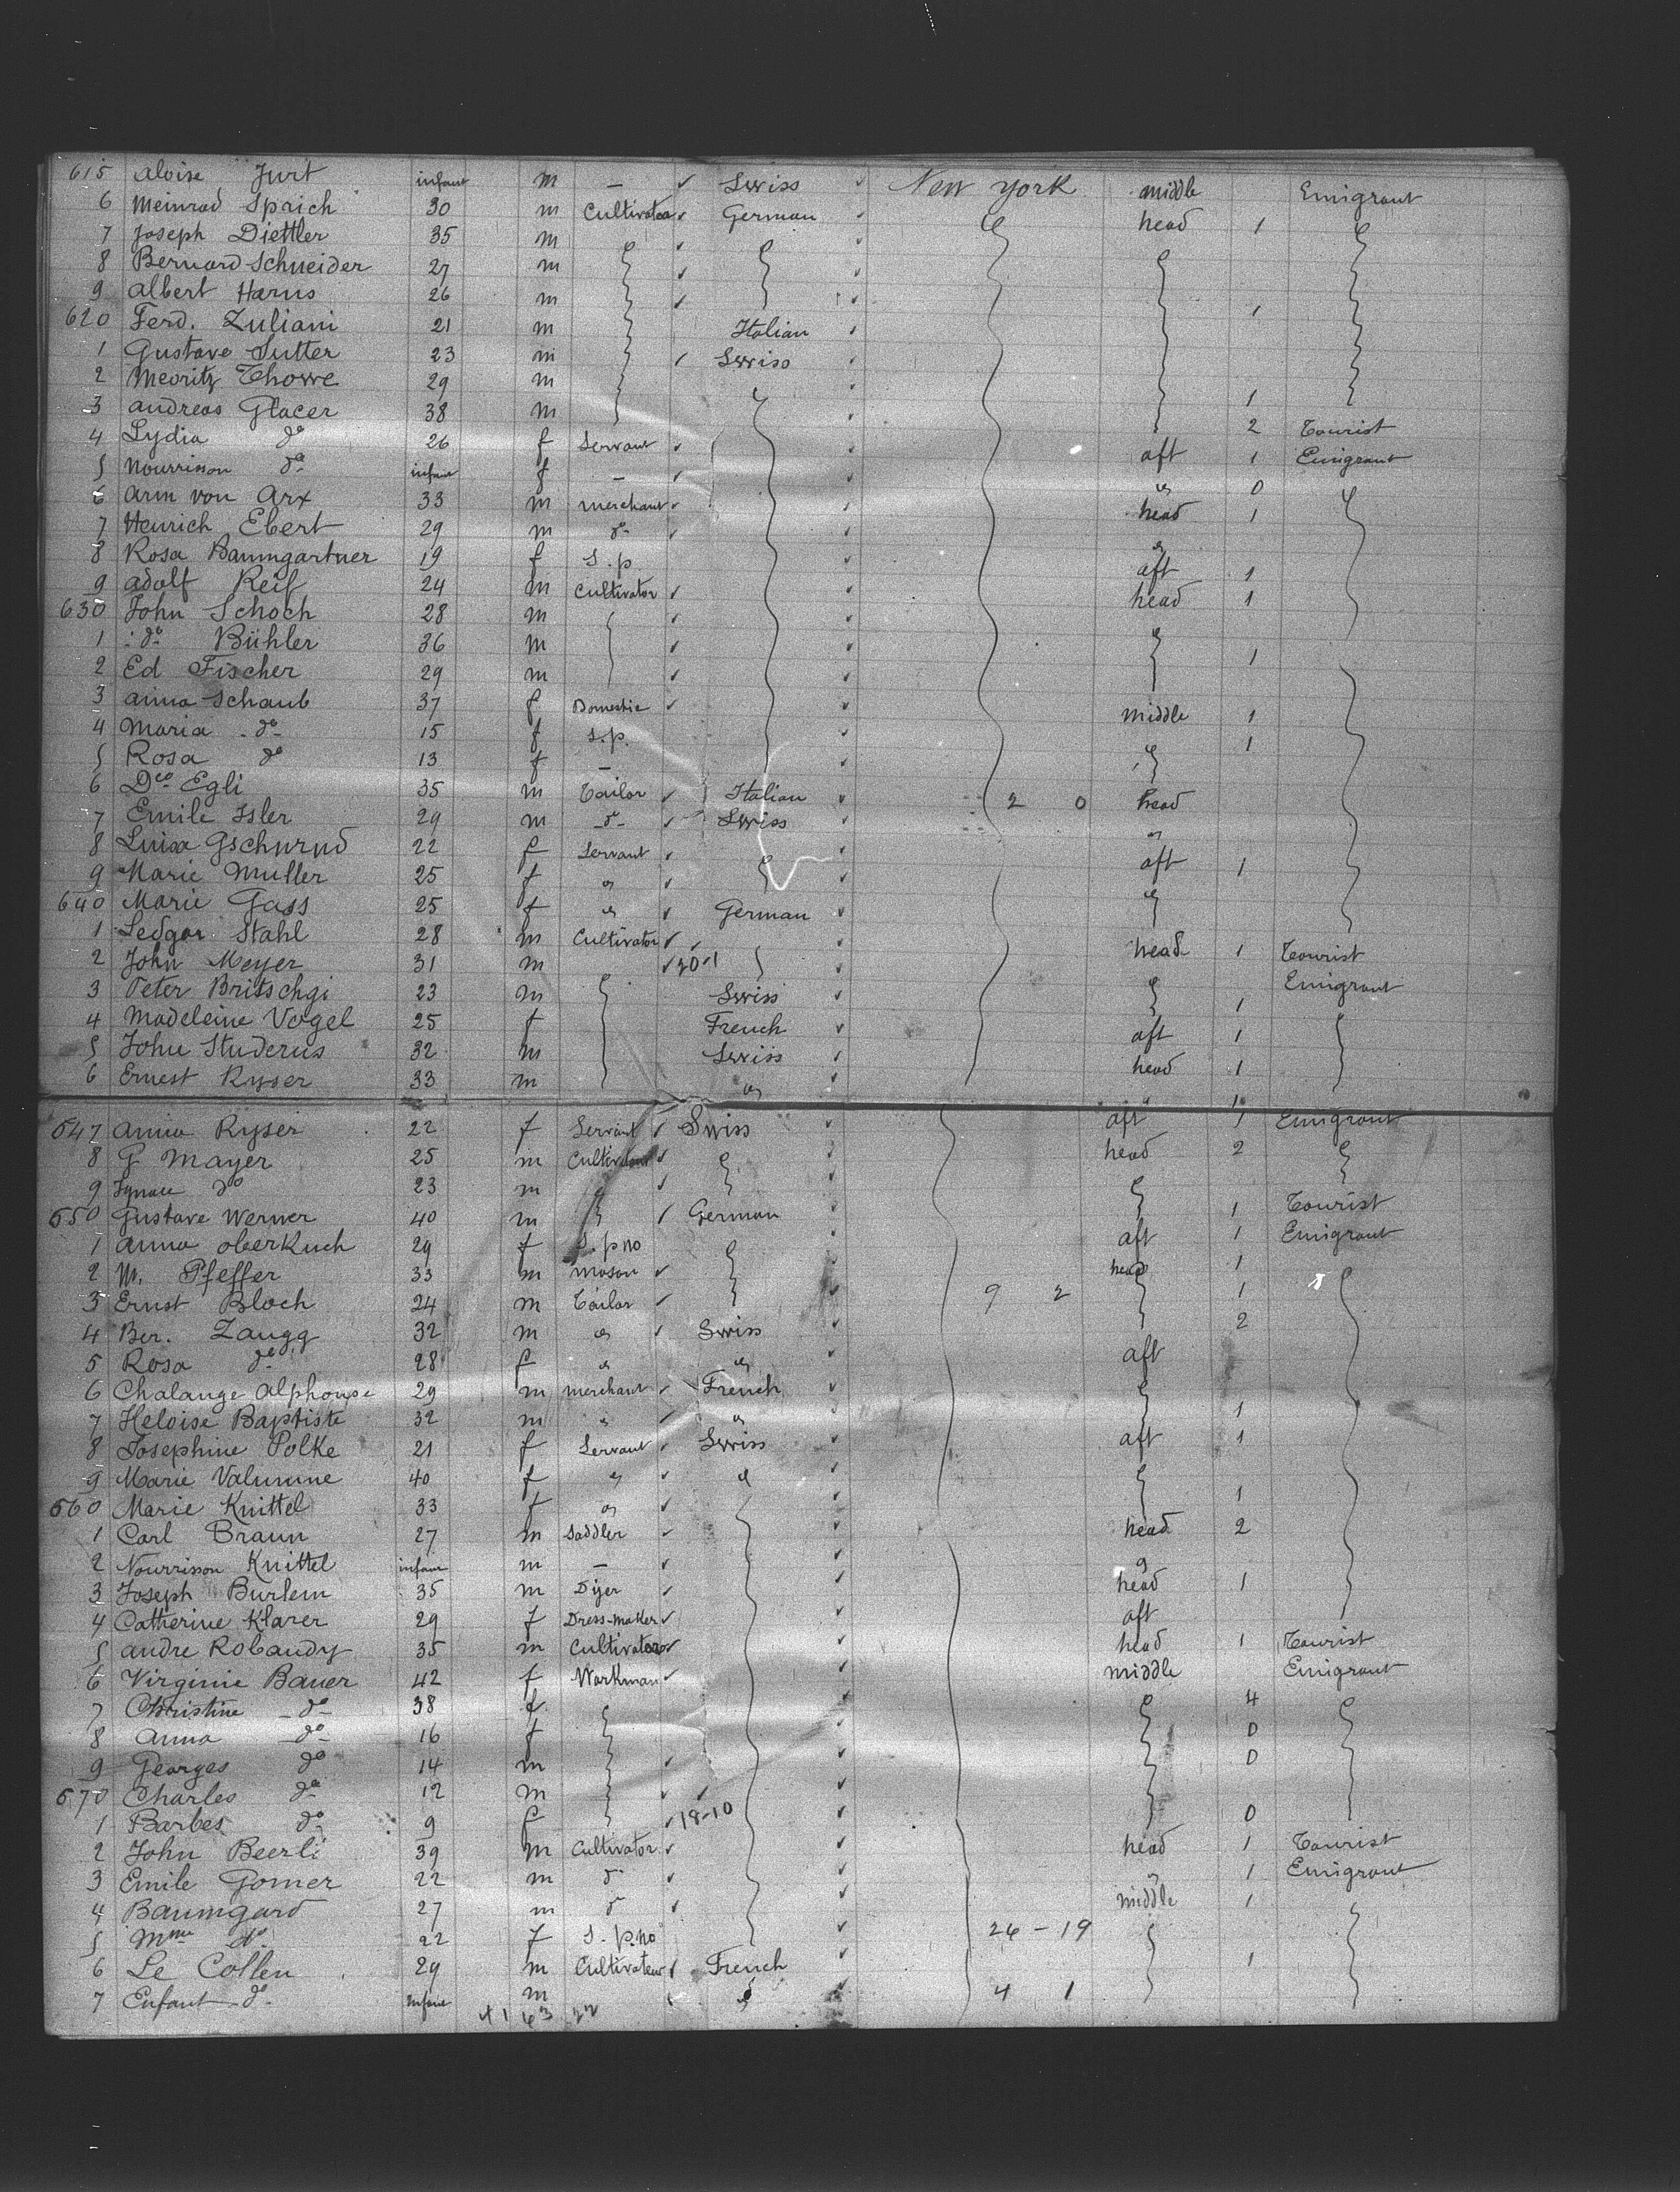 615 Aloise Jurt infant m — ✓ Swiss ✓ New York middle Emigrant
6 Meinrad Sprich 30 m Cultivator ✓ German head 1
7 Joseph Diettler 35 m ✓ ✓
8 Bernard Schneider 27 m ✓ ✓
9 Albert Harns 26 m ✓ ✓ 1
620 Ferd. Zuliani 21 m Italian ✓
1 Gustave Sutter 23 m ✓ Swiss ✓
2 Meoritz Thowe 29 m ✓ 1
3 Andreas Glacer 38 m ✓ 2 Tourist
4 Lydia do 26 f Servant ✓ aft 1 Emigrant
5 Nourrisson do infant f — ✓ " 0
6 Arm von Arx 33 m merchant ✓ head 1
7 Heurich Ebert 29 m do ✓ "
8 Rosa Baumgartner 19 f S.p. ✓ aft 1
9 Adolf Reif 24 m Cultivator ✓ head 1
630 John Schoch 28 m ✓
1 do Bühler 36 m ✓ ✓ 1
2 Ed Fischer 29 m ✓ ✓
3 Anna Schaub 37 f Domestic ✓ ✓ middle 1
4 Maria do 15 f S.p. ✓ 1
5 Rosa do 13 f — ✓
6 Dco Egli 35 m Tailor ✓ Italian ✓ 2 0 head
7 Emile Isler 29 m do ✓ Swiss ✓ "
8 Luisa Gschwrud 22 f Servant ✓ ✓ aft 1
9 Marie Muller 25 f " ✓ ✓
640 Marie Gass 25 f " ✓ German ✓
1 Ledgar Stahl 28 m Cultivator ✓ ✓ head 1 Tourist
2 John Meyer 31 m ✓ 20-1 ✓ Emigrant
3 Peter Britschgi 23 m Swiss ✓ 1
4 Madeleine Vogel 25 f French ✓ aft 1
5 John Studerus 32 m Swiss ✓ head 1
6 Ernest Ryser 33 m " ✓ 1
647 Anna Ryser 22 f Servant ✓ Swiss ✓ aft 1 Emigrant
8 G Mayer 25 m Cultivateur ✓ ✓ head 2
9 Ignace do 23 m ✓ ✓
650 Gustave Werner 40 m ✓ German ✓ 1 Tourist
1 Anna Oberkuch 29 f S. pno ✓ aft 1 Emigrant
2 M. Pfeffer 33 m Mason ✓ ✓ head 1
3 Ernst Bloch 24 m Tailor ✓ ✓ 9 2 1
4 Ber. Zaugg 32 m " ✓ Swiss ✓ 2
5 Rosa do 28 f " " ✓ aft
6 Chalange Alphonse 29 m merchant ✓ French ✓
7 Heloise Baptiste 32 m " ✓ " ✓ 1
8 Josephine Polke 21 f Servant ✓ Swiss ✓ aft 1
9 Marie Valumne 40 f " ✓ " ✓
660 Marie Knittel 33 f " ✓ ✓ 1
1 Carl Braun 27 m Saddler ✓ ✓ head 2
2 Nourrisson Knittel infant m — ✓ ✓ "
3 Joseph Burlem 35 m Dyer ✓ ✓ head 1
4 Catherine Klarer 29 f Dress-maker ✓ ✓ aft
5 Andre Robaudy 35 m Cultivator ✓ ✓ head 1 Tourist
6 Virginie Bauer 42 f Workman ✓ ✓ middle Emigrant
7 Christine do 38 f ✓ 4
8 Anna do 16 f ✓ 0
9 Georges do 14 m ✓ ✓ 0
670 Charles do 12 m ✓ ✓
1 Barbes do 9 f ✓ 18-10 ✓ 0
2 John Beerli 39 m Cultivator ✓ ✓ head 1 Tourist
3 Emile Gomer 22 m do ✓ ✓ " 1 Emigrant
4 Baumgard 27 m do ✓ ✓ middle 1
5 Mme do 22 f S. p.no ✓ 26 - 19
6 Le Collen 29 m Cultivateur ✓ French ✓ 1
7 Enfant do infant m " ✓ 4 1